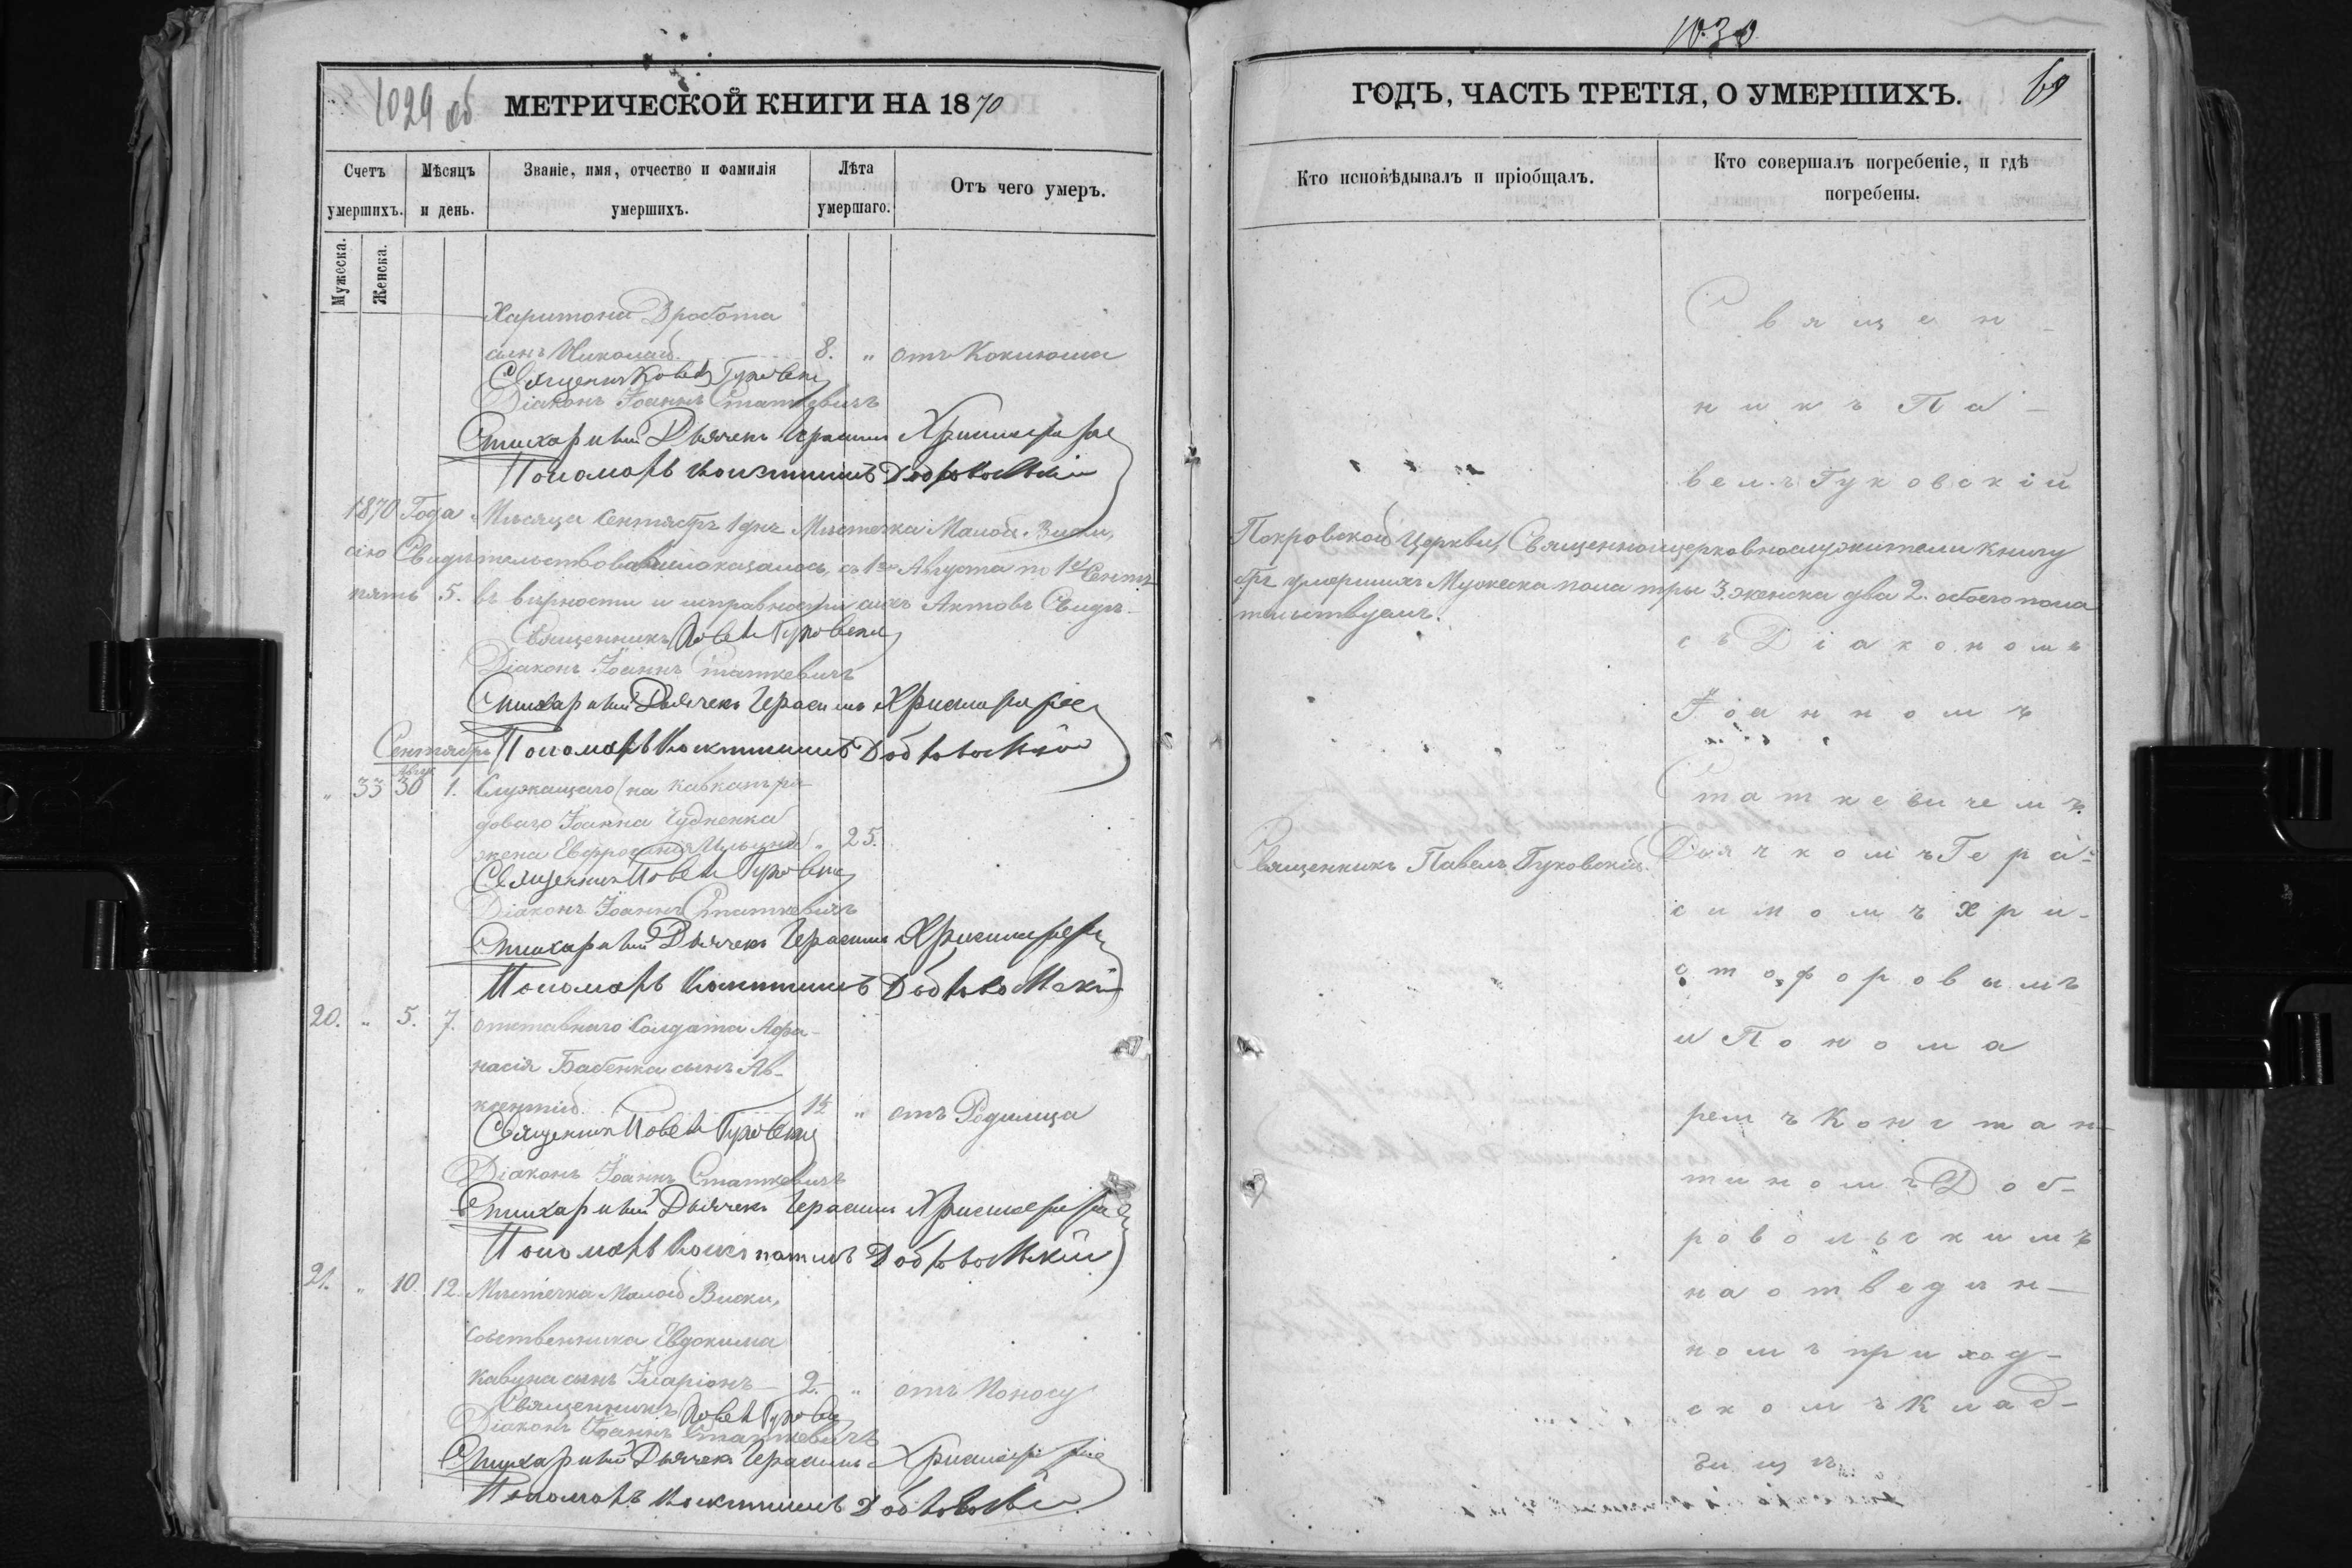 1029 об
МЕТРИЧЕСКОЙ КНИГИ НА 1870
Счетъ умершихъ.
Мѣсяцъ и день.
Званіе, имя, отчество и фамилія умершихъ.
Лѣта умершаго.
Отъ чего умеръ.
Мужеска.
Женска.
Харитона Дробота
сынъ Николай. 8. " отъ Коклюша
Священникъ Павелъ Гуковскій
Діаконъ Іоаннъ Статкевичъ
Стихарный Дьячекъ Герасимъ Христофоров
Пономарь Константинъ Добровольскій
1870 Года Мѣсяца Сентябрь 1 дня Мѣстечка Малой Виски,
сію Свидѣтельствовали оказалось, съ 1го Августа по 1е Сентя
пять 5. въ вѣрности и исправности сихъ Актовъ Свидѣ-
Священникъ Павелъ Гуковскій
Діаконъ Іоаннъ Статкевичъ
Стихарный Дьячекъ Герасимъ Христофоров
Сентябрь Пономарь Константинъ Добровольскій
Авгус
" 33 30 1. Служащаго (на Кавказѣ ря-
доваго Іоанна Чудненка
жена Евфросинія Ильина) " 25.
Священникъ Павелъ Гуковскій
Діаконъ Іоаннъ Статкевичъ
Стихарный Дьячекъ Герасимъ Христофоров
Пономарь Константинъ Добровольскій
20. " 5. 7. отставнаго Солдата Афа-
насія Бабенка сынъ Ав-
ксентій. " отъ Родимца
Священникъ Павелъ Гуковскій
Діаконъ Іоаннъ Статкевичъ
Стихарный Дьячекъ Герасимъ Христофоров
Пономарь Константинъ Добровольскій
21. " 10. 12. Мѣстечка Малой Виски,
собственника Евдокима
Кавуна сынъ Иларіонъ 2. " отъ Поносу
Священникъ Павелъ Гуковскій
Діаконъ Іоаннъ Статкевичъ
Стихарный Дьячекъ Герасимъ Христофоров
Пономарь Константинъ Добровольскій
1030
ГОДЪ, ЧАСТЬ ТРЕТІЯ, О УМЕРШИХЪ.
69
Кто исповѣдывалъ и пріобщалъ.
Кто совершалъ погребеніе, и гдѣ погребены.
Священ-
никъ Па-
велъ Гуковскій
Покровской Церкви, Священноцерковнослужители книгу
бръ умершихъ Мужеска пола три 3. женска два 2. обоего пола
тельствуемъ.
съ Діакономъ
Іоанномъ
Статкевичемъ
Священникъ Павелъ Гуковскій.
Дьячкомъ Гера-
симомъ Хри-
стофоровымъ
и Понома
ремъ Констан-
тиномъ Доб-
ровольскимъ
на отведен-
номъ приход-
скомъ Клад-
бищѣ.